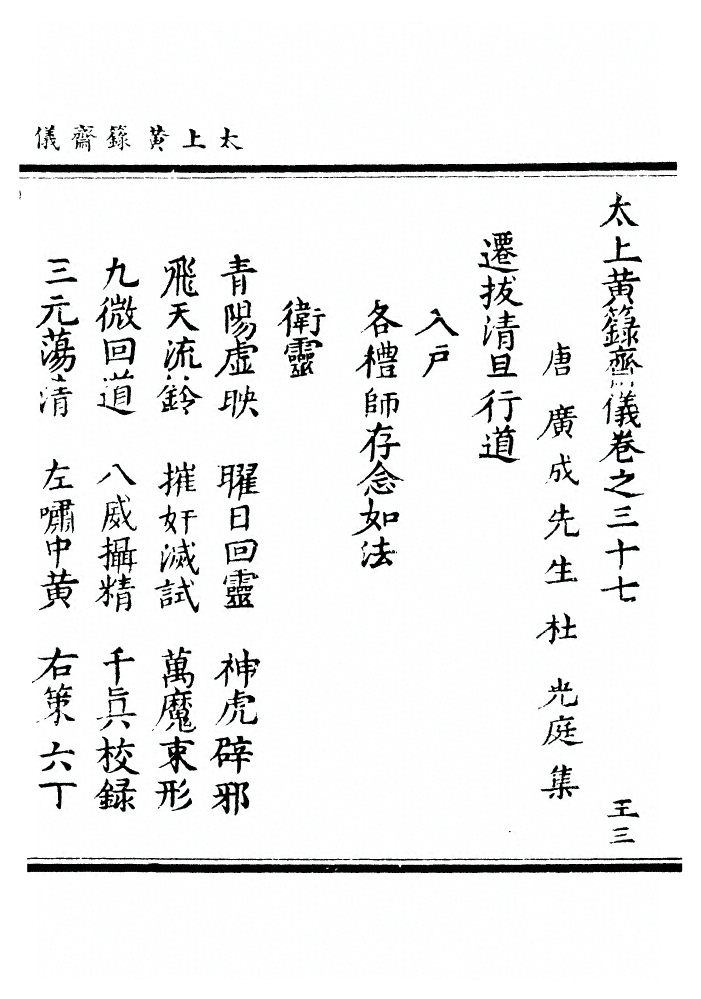 太上黃籙齋儀
太上黃籙齋儀卷之三十七
王三
唐廣成先生杜光庭集
遷拔清旦行道
入戶
各禮師存念如法
衛靈
青陽虛映　曜日回靈　神虎辟邪
飛天流鈴　摧奸滅試　萬魔束形
九微回道　八威攝精　千兵校録
三元蕩清　左嘯中黃　右策六丁